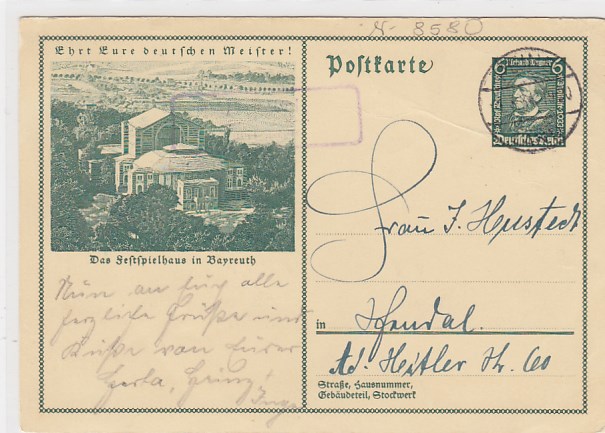 N- 8580
Ehrt Eure deutschen Meister!
Das Festspielhaus in Bayreuth
Postkarte
6 Richard Wagner 6
Deutsches Reich
Frau J. Hustedt
in Stendal.
Ad. Hitler Str. 60
Straße, Hausnummer,
Gebäudeteil, Stockwerk
Nun an Euch alle
herzliche Grüße und
Küsse von Eurer
Herta, Heinz,
Inge